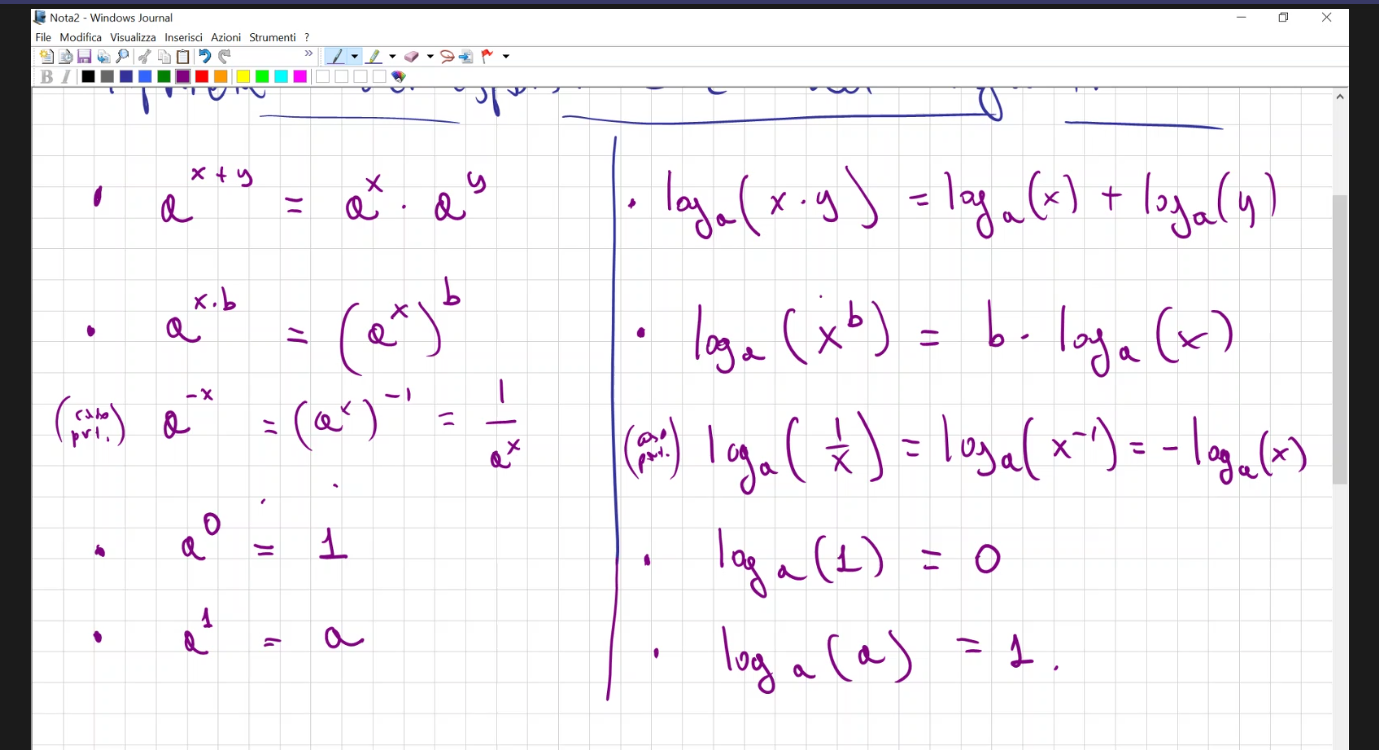 Nota2 - Windows Journal
File Modifica Visualizza Inserisci Azioni Strumenti ?
B I
• a^{x+y} = a^x · a^y
• a^{x·b} = (a^x)^b
(caso prt.) a^{-x} = (a^x)^{-1} = 1/a^x
• a^0 = 1
• a^1 = a
• log_a(x·y) = log_a(x) + log_a(y)
• log_a(x^b) = b · log_a(x)
(caso prt.) log_a(1/x) = log_a(x^{-1}) = -log_a(x)
• log_a(1) = 0
• log_a(a) = 1.